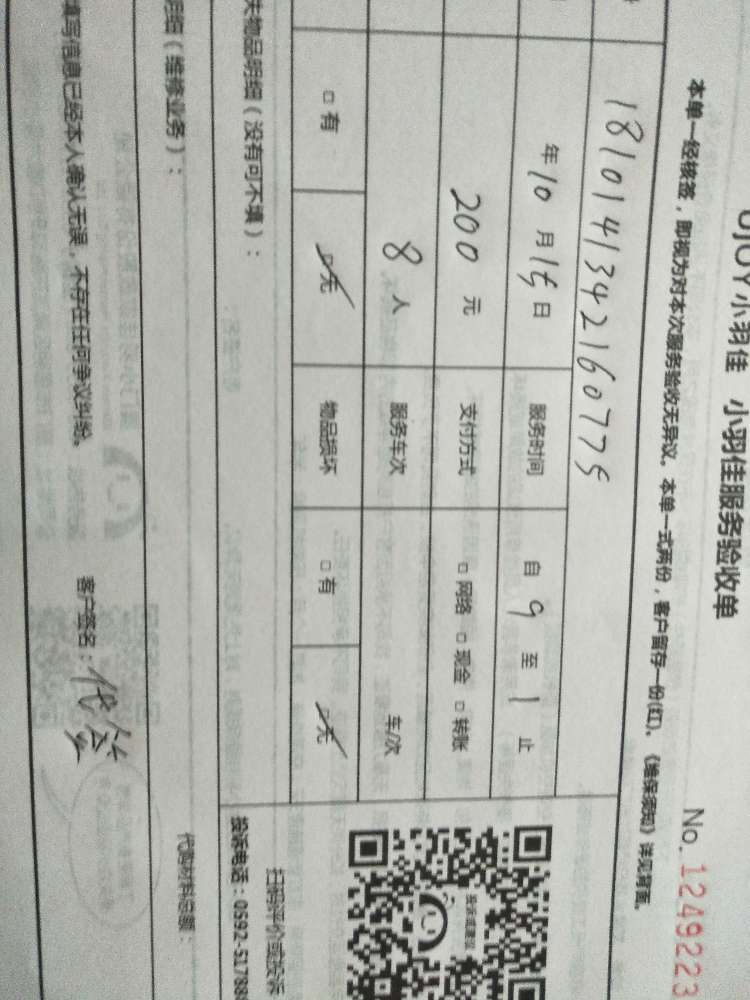 UJOY小羽佳 小羽佳服务验收单
No. 1249223
本单一经核签，即视为对本次服务验收无异议。本单一式两份，客户留存一份(红)。《维保须知》详见背面。
181014134216077 5
年 10 月 15 日 服务时间 自 9 至 1 止
200 元 支付方式 □ 网络 □ 现金 □ 转账
8 人 服务车次 车/次
□ 有 □ 无 物品损坏 □ 有 □ 无
失物品明细（没有可不填）：
扫码评价或投诉
投诉电话：0592-51788
明细（维修业务）：
代购材料总额：
填写信息已经本人确认无误，不存在任何争议纠纷。 客户签名：代签